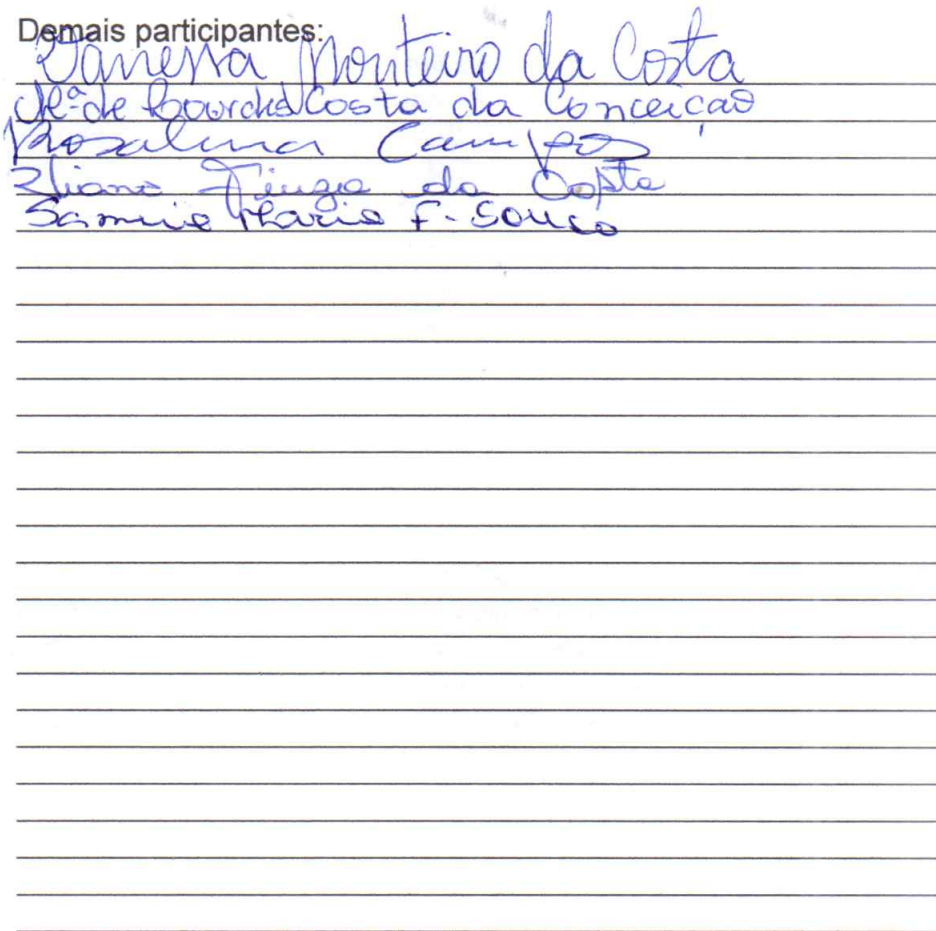 Demais participantes:
Vanessa Monteiro da Costa
Mª de Lourdes Costa da Conceição
Rosalina Campos
Eliana da Costa
Samuie Maria F. Souza